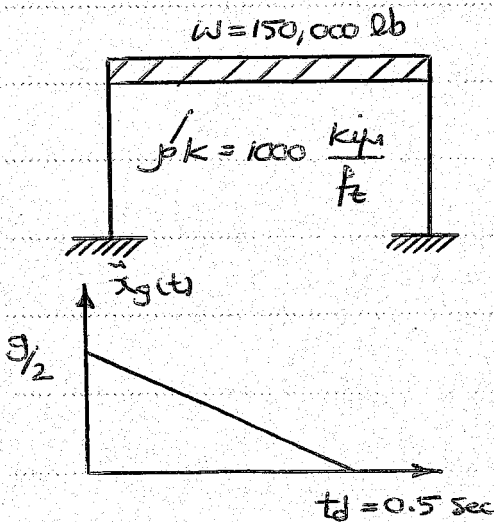 W = 150,000 lb
k = 1000 kips/ft
ẍg(t)
g/2
td = 0.5 sec